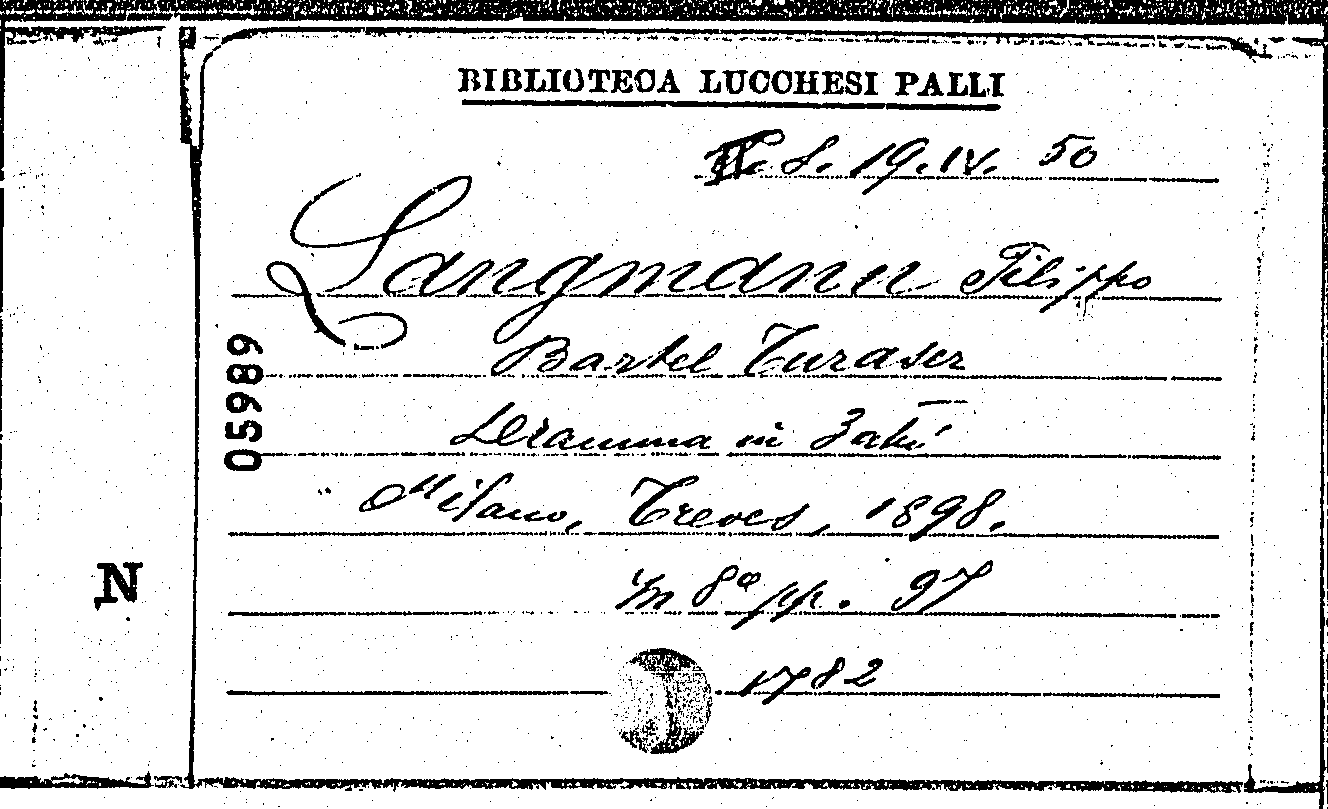 BIBLIOTECA LUCCHESI PALLI
S. 19. IV. 50
Langmann Filippo
Bartel Turaser
Dramma in 3 atti
Milano, Treves, 1898.
In 8º pp. 97
1782
05989
N